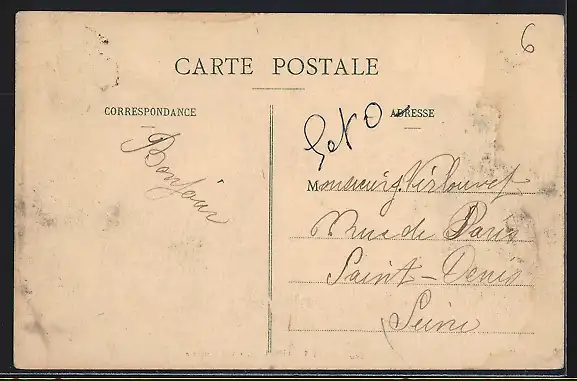 6
CARTE POSTALE
CORRESPONDANCE
ADRESSE
Bonjour
Monsieur
rue de Paris
Saint-Denis
Seine